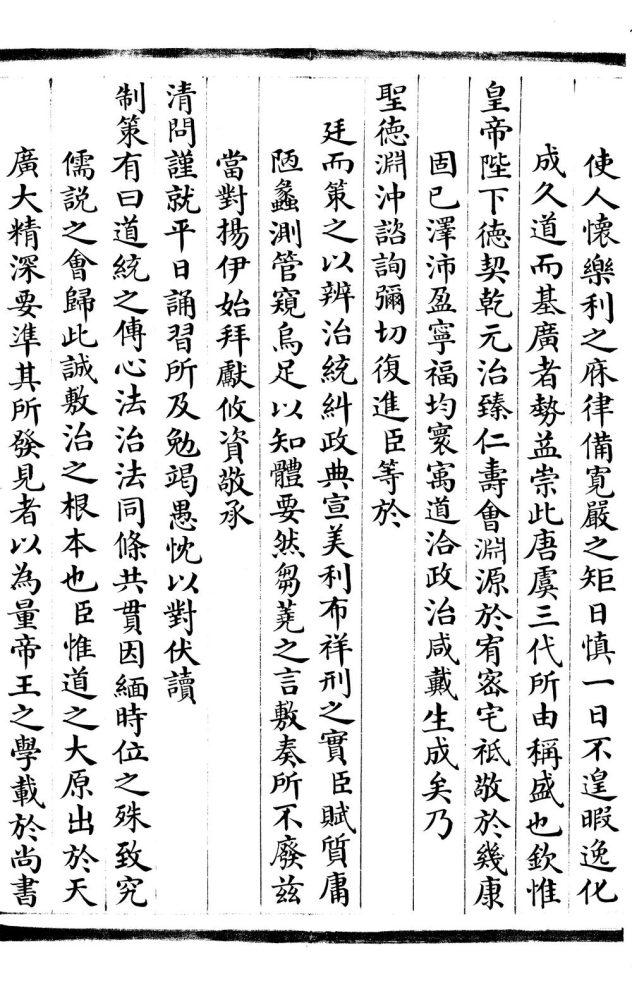 使人懷樂利之庥律備寛嚴之矩日慎一日不遑暇逸化
成久道而基廣者勢益崇此唐虞三代所由稱盛也欽惟
皇帝陛下徳契乾元治臻仁壽會淵源於宥宻宅祗敬於幾康
固已澤沛盈寧福均寰㝢道洽政治咸戴生成矣乃
聖徳淵沖諮詢彌切復進臣等於
廷而策之以辨治統糾政典宣美利布祥刑之實臣賦質庸
陋蠡測管窺烏足以知體要然芻蕘之言敷奏所不廢兹
當對揚伊始拜獻攸資敬承
清問謹就平日誦習所及勉竭愚忱以對伏讀
制策有曰道統之傳心法治法同條共貫因緬時位之殊致究
儒説之會歸此誠敷治之根本也臣惟道之大原出於天
廣大精深要準其所發見者以為量帝王之學載於尚書